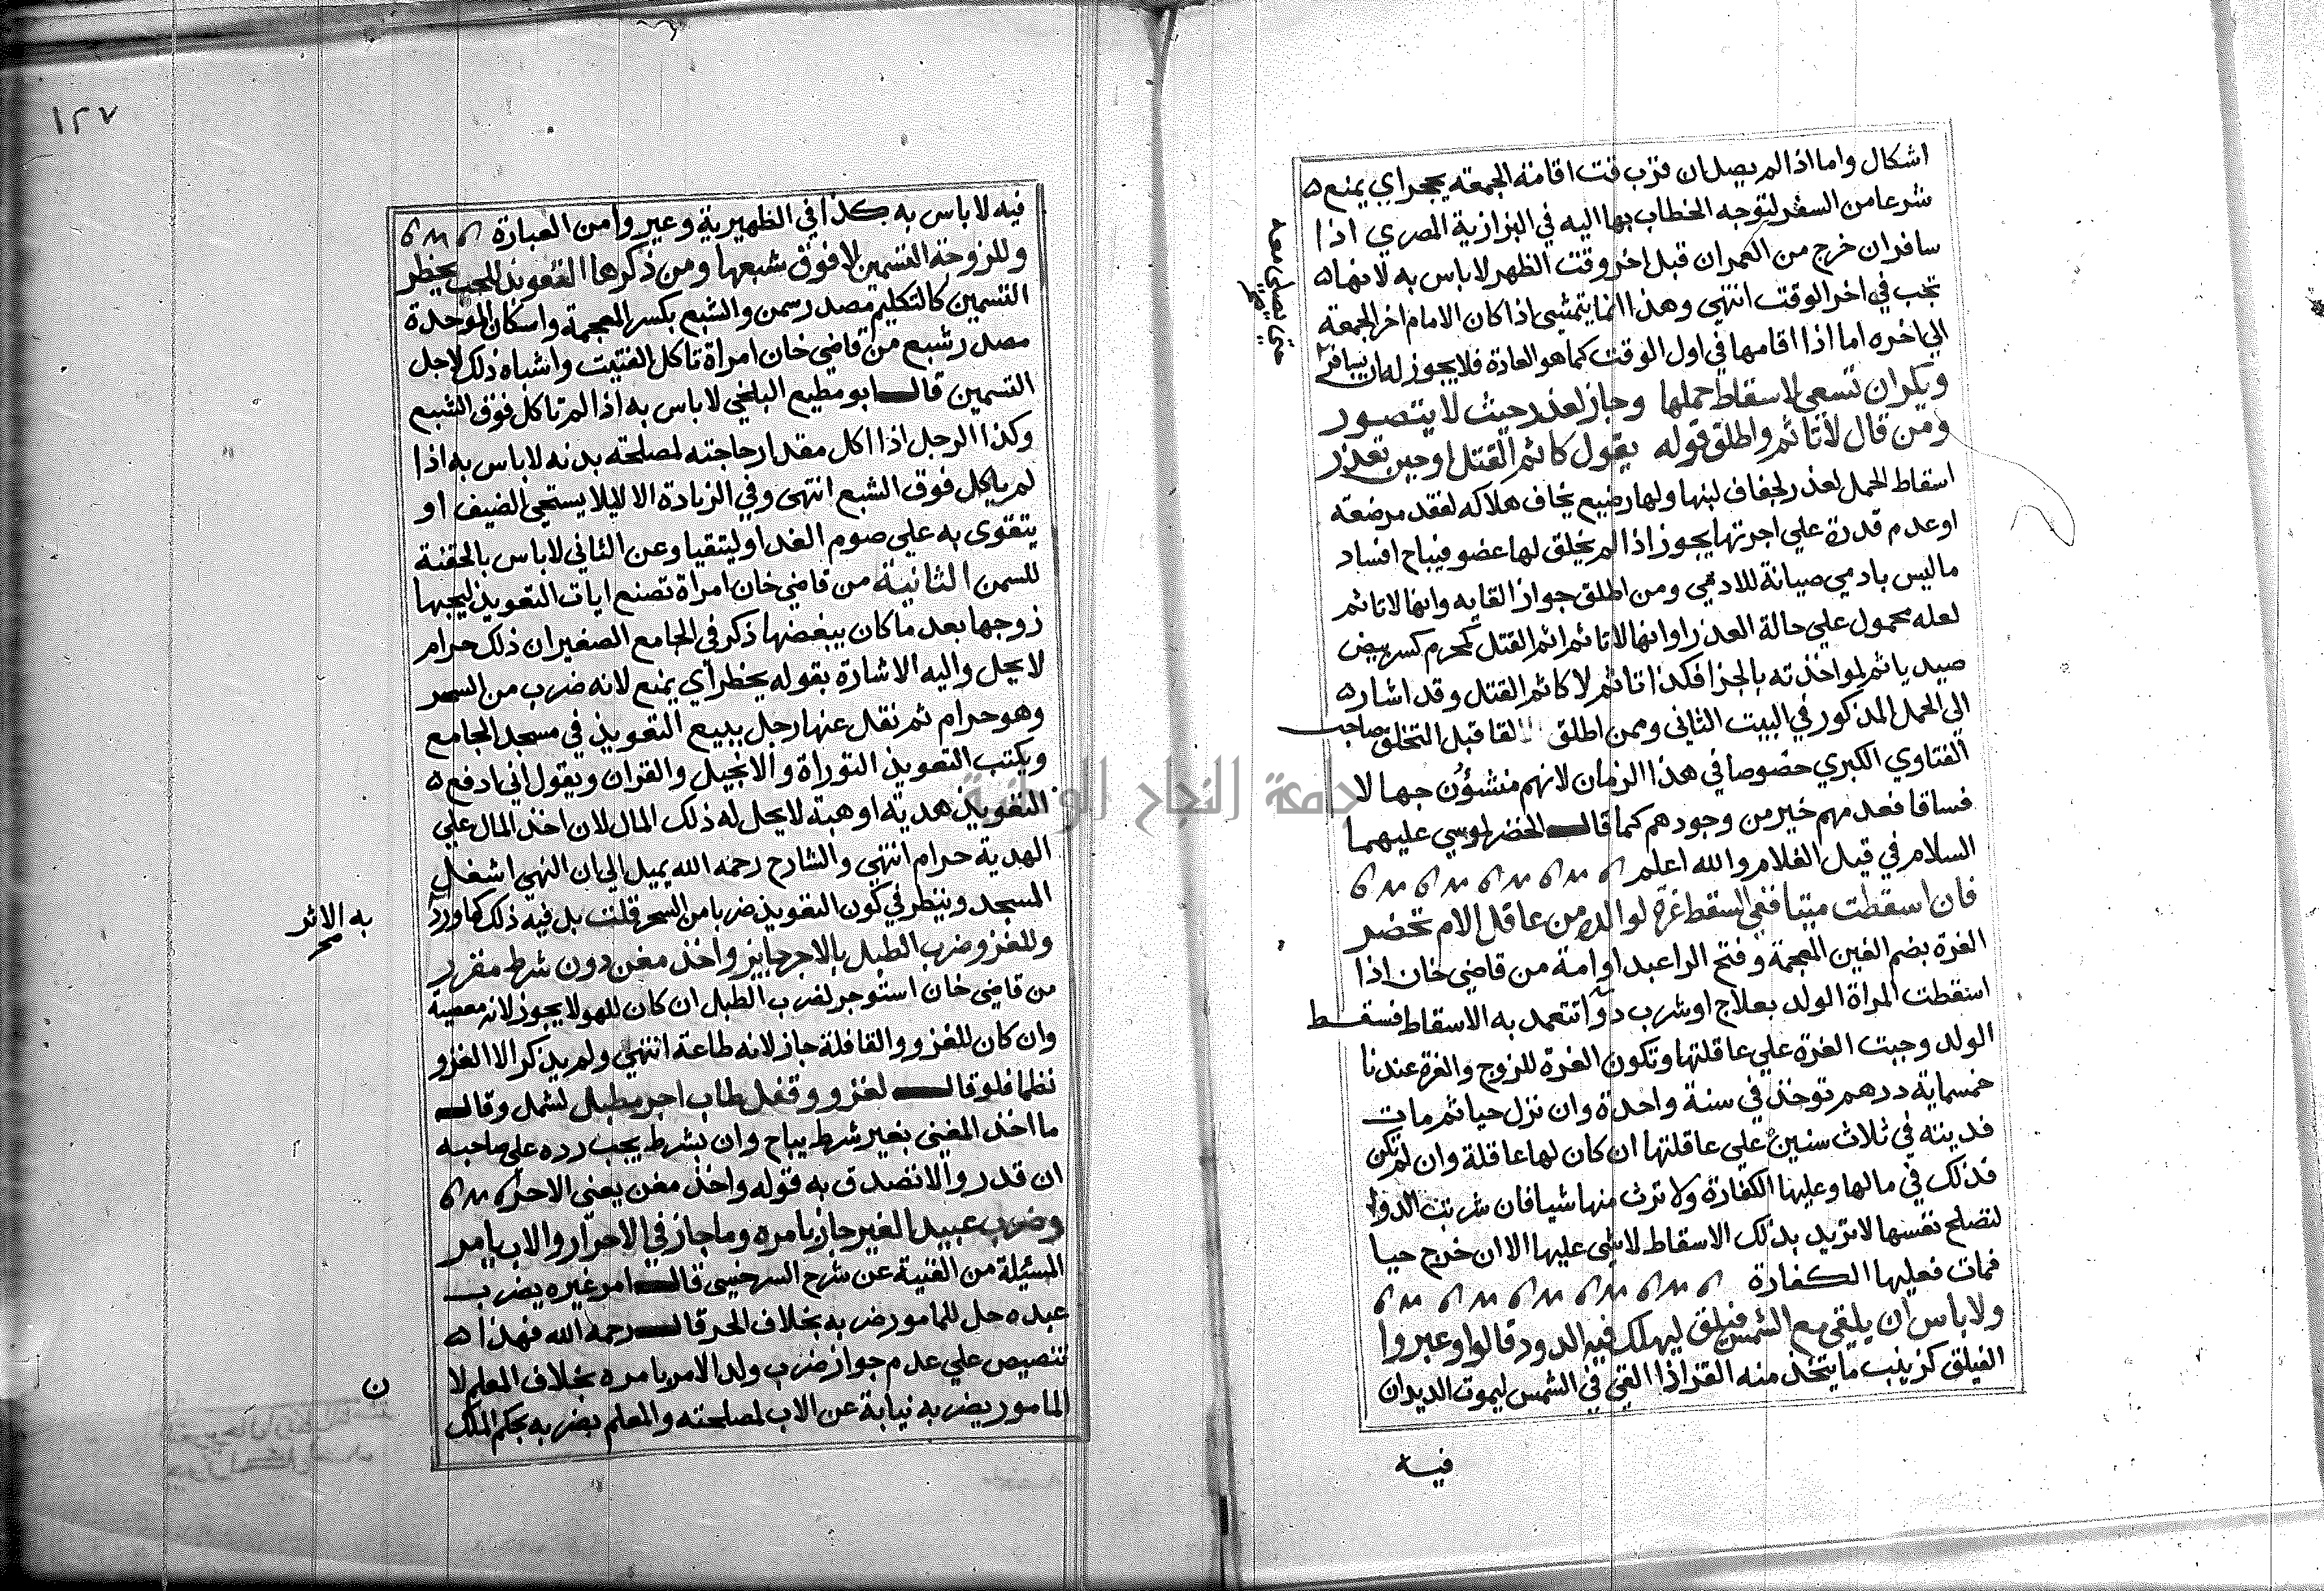 اشكال واما اذا لم يصل ان قرب وقت اقامة الجمعه يحجر اي يمنع
شرعا من السفر لتوجه الخطاب بها اليه في البزازية المصري اذا
سافر ان خرج من العمران قبل اخر وقت الظهر لا باس به لانها
تجب في اخر الوقت انتهي وهذا انما يتمشي اذا كان الامام اخر الجمعة
الي اخره اما اذا اقامها في اول الوقت كما هو العادة فلا يجوز له ان يسافر
حتي يصلي معه
ويكره ان تسعي لاسقاط حملها وجاز لعذر حيث لا يتصور
ومن قال لا تاثم واطلق قوله يقول كاثم القتل او حين تعذر
اسقاط الحمل لعذر لجفاف لبنها ولها رضيع يخاف هلاكه لفقد مرضعة
او عدم قدرة علي اجرتها يجوز اذا لم يخلق لها عضو فيباح افساد
ما ليس بادمي صيانة للادمي ومن اطلق جواز القايه وانها لا تاثم
لعله محمول علي حالة العذر او انها لا تاثم اثم القتل كمحرم كسر بيض
صيد ياثم لمواخذته بالجزا فكذا تاثم لا كاثم القتل وقد اشار
الى الحمل المذكور في البيت الثاني وممن اطلق القا قبل التخلق صاحب
الفتاوي الكبري خصوصا في هذا الزمان لانهم منشؤن جهالا
فساقا فعدمهم خير من وجودهم كما قال الخضر لموسي عليهما
السلام في قيل الغلام والله اعلم
فان اسقطت ميتا ففي السقط غرة لوالده من عاقل الام تحضر
الغرة بضم الغين المعجمة وفتح الرا عبد او امة من قاضي خان اذا
اسقطت المراة الولد بعلاج او شرب دوا تتعمد به الاسقاط فسقط
الولد وجبت الغرة علي عاقلتها وتكون الغرة للزوج والغرة عندنا
خمسماية درهم توخذ في سنة واحدة وان نزل حيا ثم مات
فديته في ثلاث سنين علي عاقلتها ان كان لها عاقلة وان لم تكن
فذلك في مالها وعليها الكفارة ولا ترث منها شيا فان شربت الدوا
لتصلح نفسها لا تريد بذلك الاسقاط لا شي عليها الا ان خرج حيا
فمات فعليها الكفارة
ولا باس ان يلقي مع الشمس فيلق ليهلك فيه الدود قالوا وعبروا
الفيلق كزينب ما يتخذ منه القز اذا القي في الشمس ليموت الديدان
فيه
١٢٧
فيه لا باس به كذا في الظهيرية وعبروا من العبارة
وللزوجة التسمين لا فوق شبعها ومن ذكرها التعويذ للحب يحظر
التسمين كالتكليم مصدر سمن والشبع بكسر المعجمة واسكان الموحدة
مصدر شبع من قاضي خان امراة تاكل الفتيت واشباه ذلك لاجل
التسمين قال ابو مطيع البلخي لا باس به اذا لم تاكل فوق الشبع
وكذا الرجل اذا اكل مقدار حاجته لمصلحته بدنه لا باس به اذا
لم ياكل فوق الشبع انتهى وفي الزيادة الا ليلا يستحي الضيف او
يتقوى به علي صوم الغد او ليتقيا وعن الثاني لا باس بالحقنة
للسمن الثانية من قاضي خان امراة تصنع ايات التعويذ ليحبها
زوجها بعد ما كان يبغضها ذكر في الجامع الصغير ان ذلك حرام
لا يحل واليه الاشارة بقوله يحظر اي يمنع لانه ضرب من السحر
وهو حرام ثم نقل عنها رجل يبيع التعويذ في مسجد الجامع
ويكتب التعويذ التوراة والانجيل والقران ويقول اني ادفع
التعويذ هدية او هبة لا يحل له ذلك المال لان اخذ المال علي
الهدية حرام انتهي والشارح رحمه الله يميل الي ان النهي اشغل
المسجد وينظر في كون التعويذ ضربا من السحر قلت بل فيه ذلك كما ورد
به الاثر
وللغزو ضرب الطبل بالاجر جايز واخذ مغن دون شرط مقرر
من قاضي خان استوجر لضرب الطبل ان كان للهو لا يجوز لانه معصية
وان كان للغزو والقافلة جاز لانه طاعة انتهي ولم يذكر الا الغزو
نظما فلو قال لغزو وقفل طاب اجر مطبل لشمل وقال
ما اخذ المغني بغير شرط يباح وان بشرط يجب رده علي صاحبه
ان قدر والا تصدق به قوله واخذ مغن يعني الاجر
وضرب عبيد الغير جاز بامره وما جاز في الاحرار والاب يامر
المسئلة من القنية عن شرح السرخسي قال امر غيره يضرب
عبده حل للمامور ضربه بخلاف الحر قال رحمه الله فهذا
تنصيص علي عدم جواز ضرب ولد الامر بامره بخلاف المعلم لا
ن
المامور يضربه نيابة عن الاب لمصلحته والمعلم يضربه بحكم الملك
جامعة النجاح الوطنية